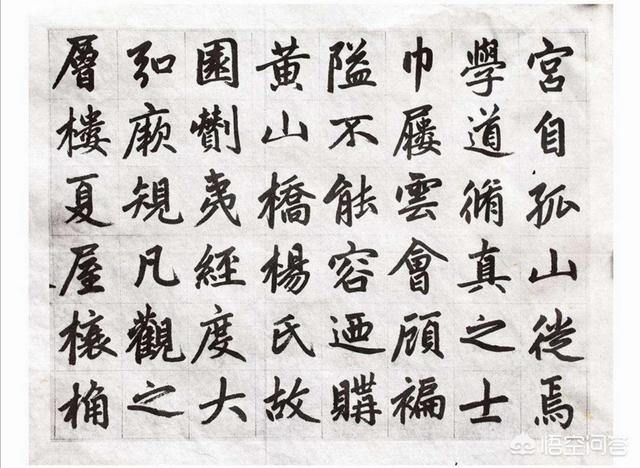 宮自孤山徙焉
學道脩真之士
巾屨雲會顧褊
隘不能容迺購
黄山橋楊氏故
園劗夷經度大
弘厥規凡觀之
層樓夏屋榱桷
悟空问答